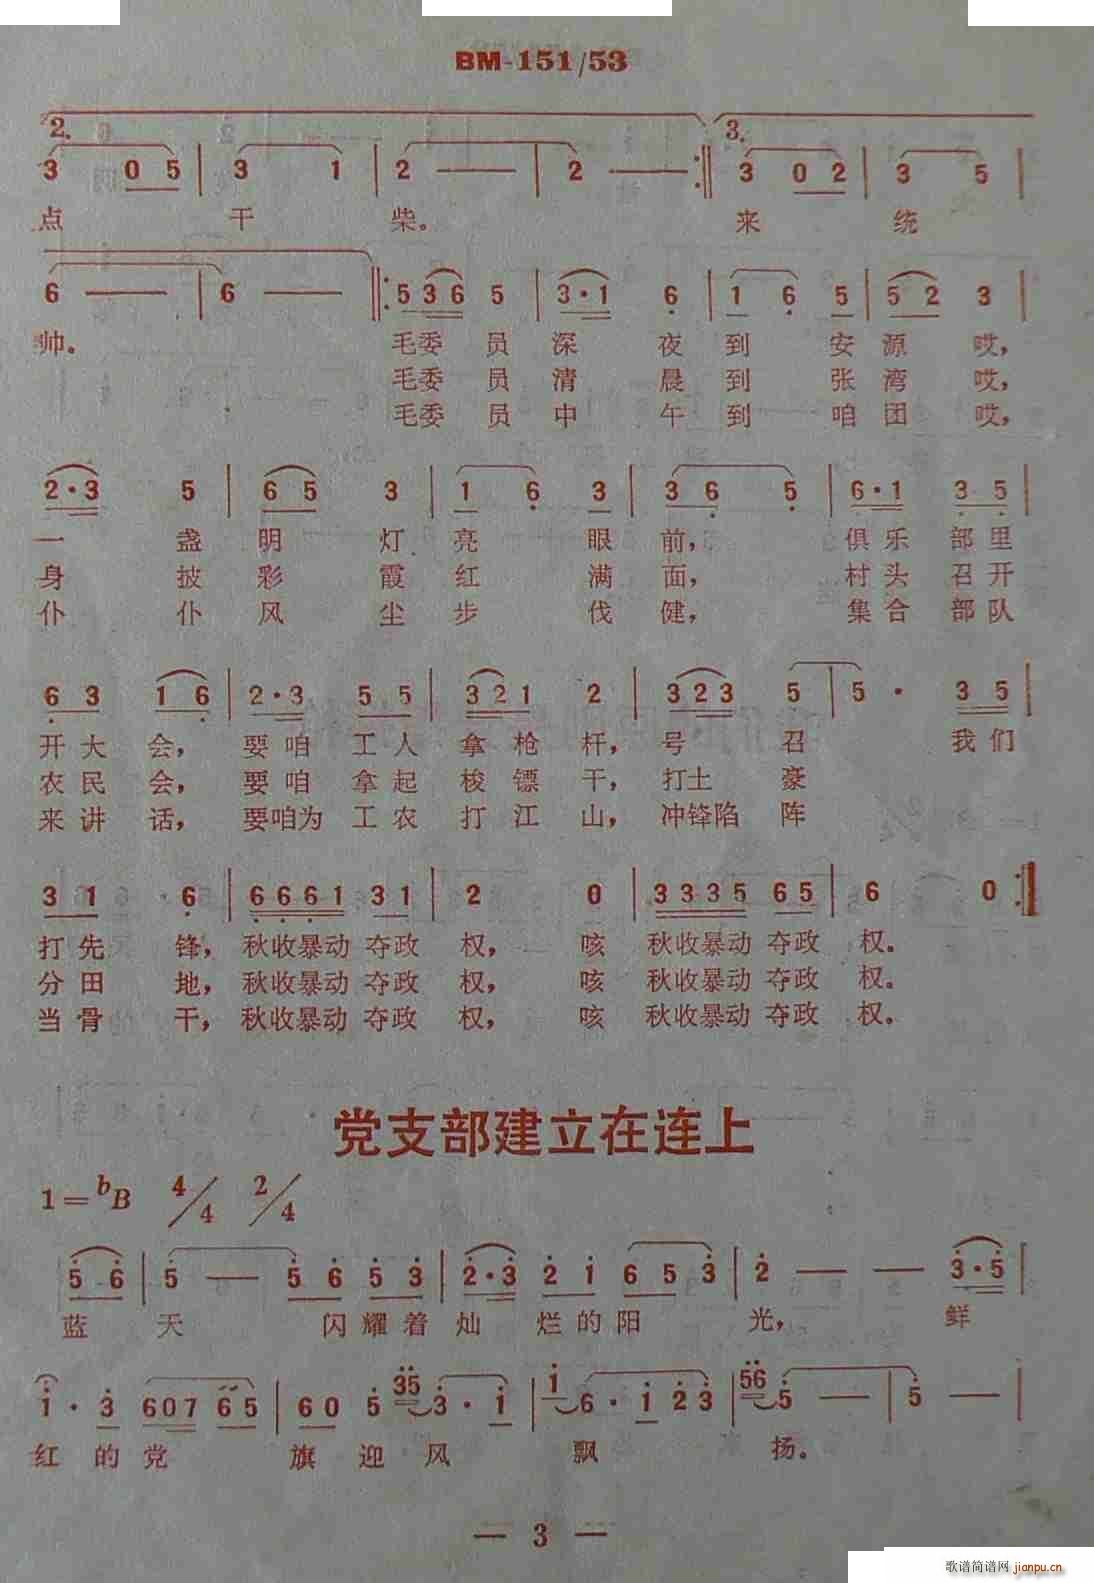 BM-151/53
2. 3.
3 0 5 | 3 1 | 2 — | 2 — :|| 3 0 2 | 3 5 |
点 干 柴。 来 统
6 — | 6 — :|| 5 3 6 5 | 3·1 6 | 1 6 5 | 5 2 3 |
帅。 毛委 员 深 夜 到 安 源 哎,
毛委 员 清 晨 到 张 湾 哎,
毛委 员 中 午 到 咱 团 哎,
2·3 5 | 6 5 3 | 1 6 3 | 3 6 5 | 6·1 3 5 |
一 盏 明 灯 亮 眼 前, 俱乐 部里
身 披 彩 霞 红 满 面, 村头 召开
仆 仆 风 尘 步 伐 健, 集合 部队
6 3 1 6 | 2·3 5 5 | 3 2 1 2 | 3 2 3 5 | 5 · 3 5 |
开大 会, 要咱 工人 拿枪 杆, 号 召 我们
农民 会, 要咱 拿起 梭镖 干, 打土 豪
来讲 话, 要咱为 工农 打江 山, 冲锋陷 阵
3 1 6 | 6 6 6 1 3 1 | 2 0 | 3 3 3 5 6 5 | 6 0 :||
打先 锋, 秋收暴动 夺政 权, 咳 秋收暴动 夺政 权。
分田 地, 秋收暴动 夺政 权, 咳 秋收暴动 夺政 权。
当骨 干, 秋收暴动 夺政 权, 咳 秋收暴动 夺政 权。
党支部建立在连上
1=bB 4/4 2/4
5 6 | 5 — 5 6 5 3 | 2·3 2 1 6 5 3 | 2 — — 3·5 |
蓝 天 闪耀着 灿 烂的阳 光, 鲜
1 · 3 607 65 | 60 5 35 3 · 1 | 1 6 · 1 2 3 | 56 5 — | 5 — |
红 的 党 旗 迎 风 飘 扬。
— 3 —
歌谱简谱网 jianpu.cn